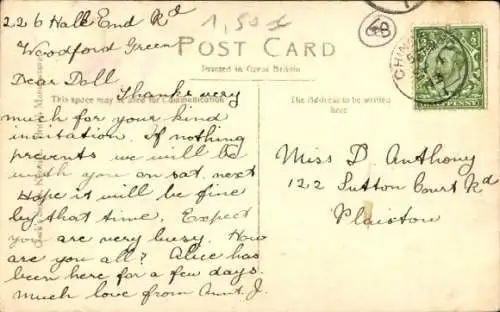 226 Hall End Rd
Woodford Green
1,50 £
GB
POST CARD
Printed in Great Britain
This space may be used for Communication
The Address to be written
here
CHING
PENNY
Dear Doll
Thanks very
much for your kind
invitation. If nothing
prevents we will be
with you on sat. next
Hope it will be fine
by that time. Expect
you are very busy. How
are you all? Alice has
been here for a few days.
Much love from Aunt J.
Miss D. Anthony
122 Sutton Court Rd
Plaistow